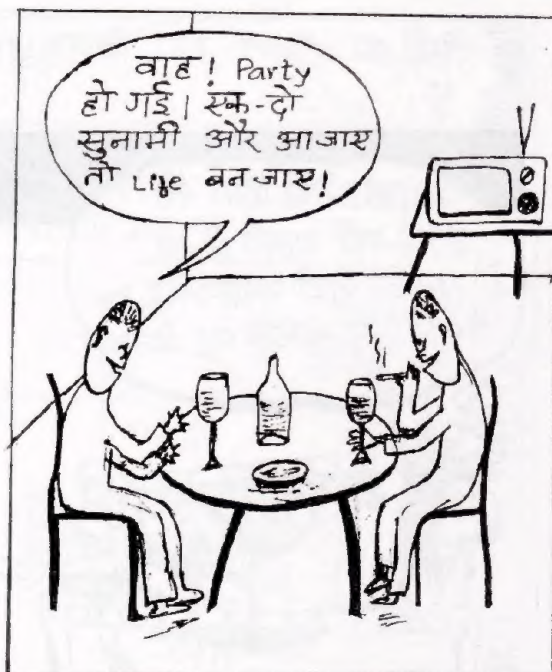 वाह! Party
हो गई। एक-दो
सुनामी और आजाए
तो Life बन जाए!